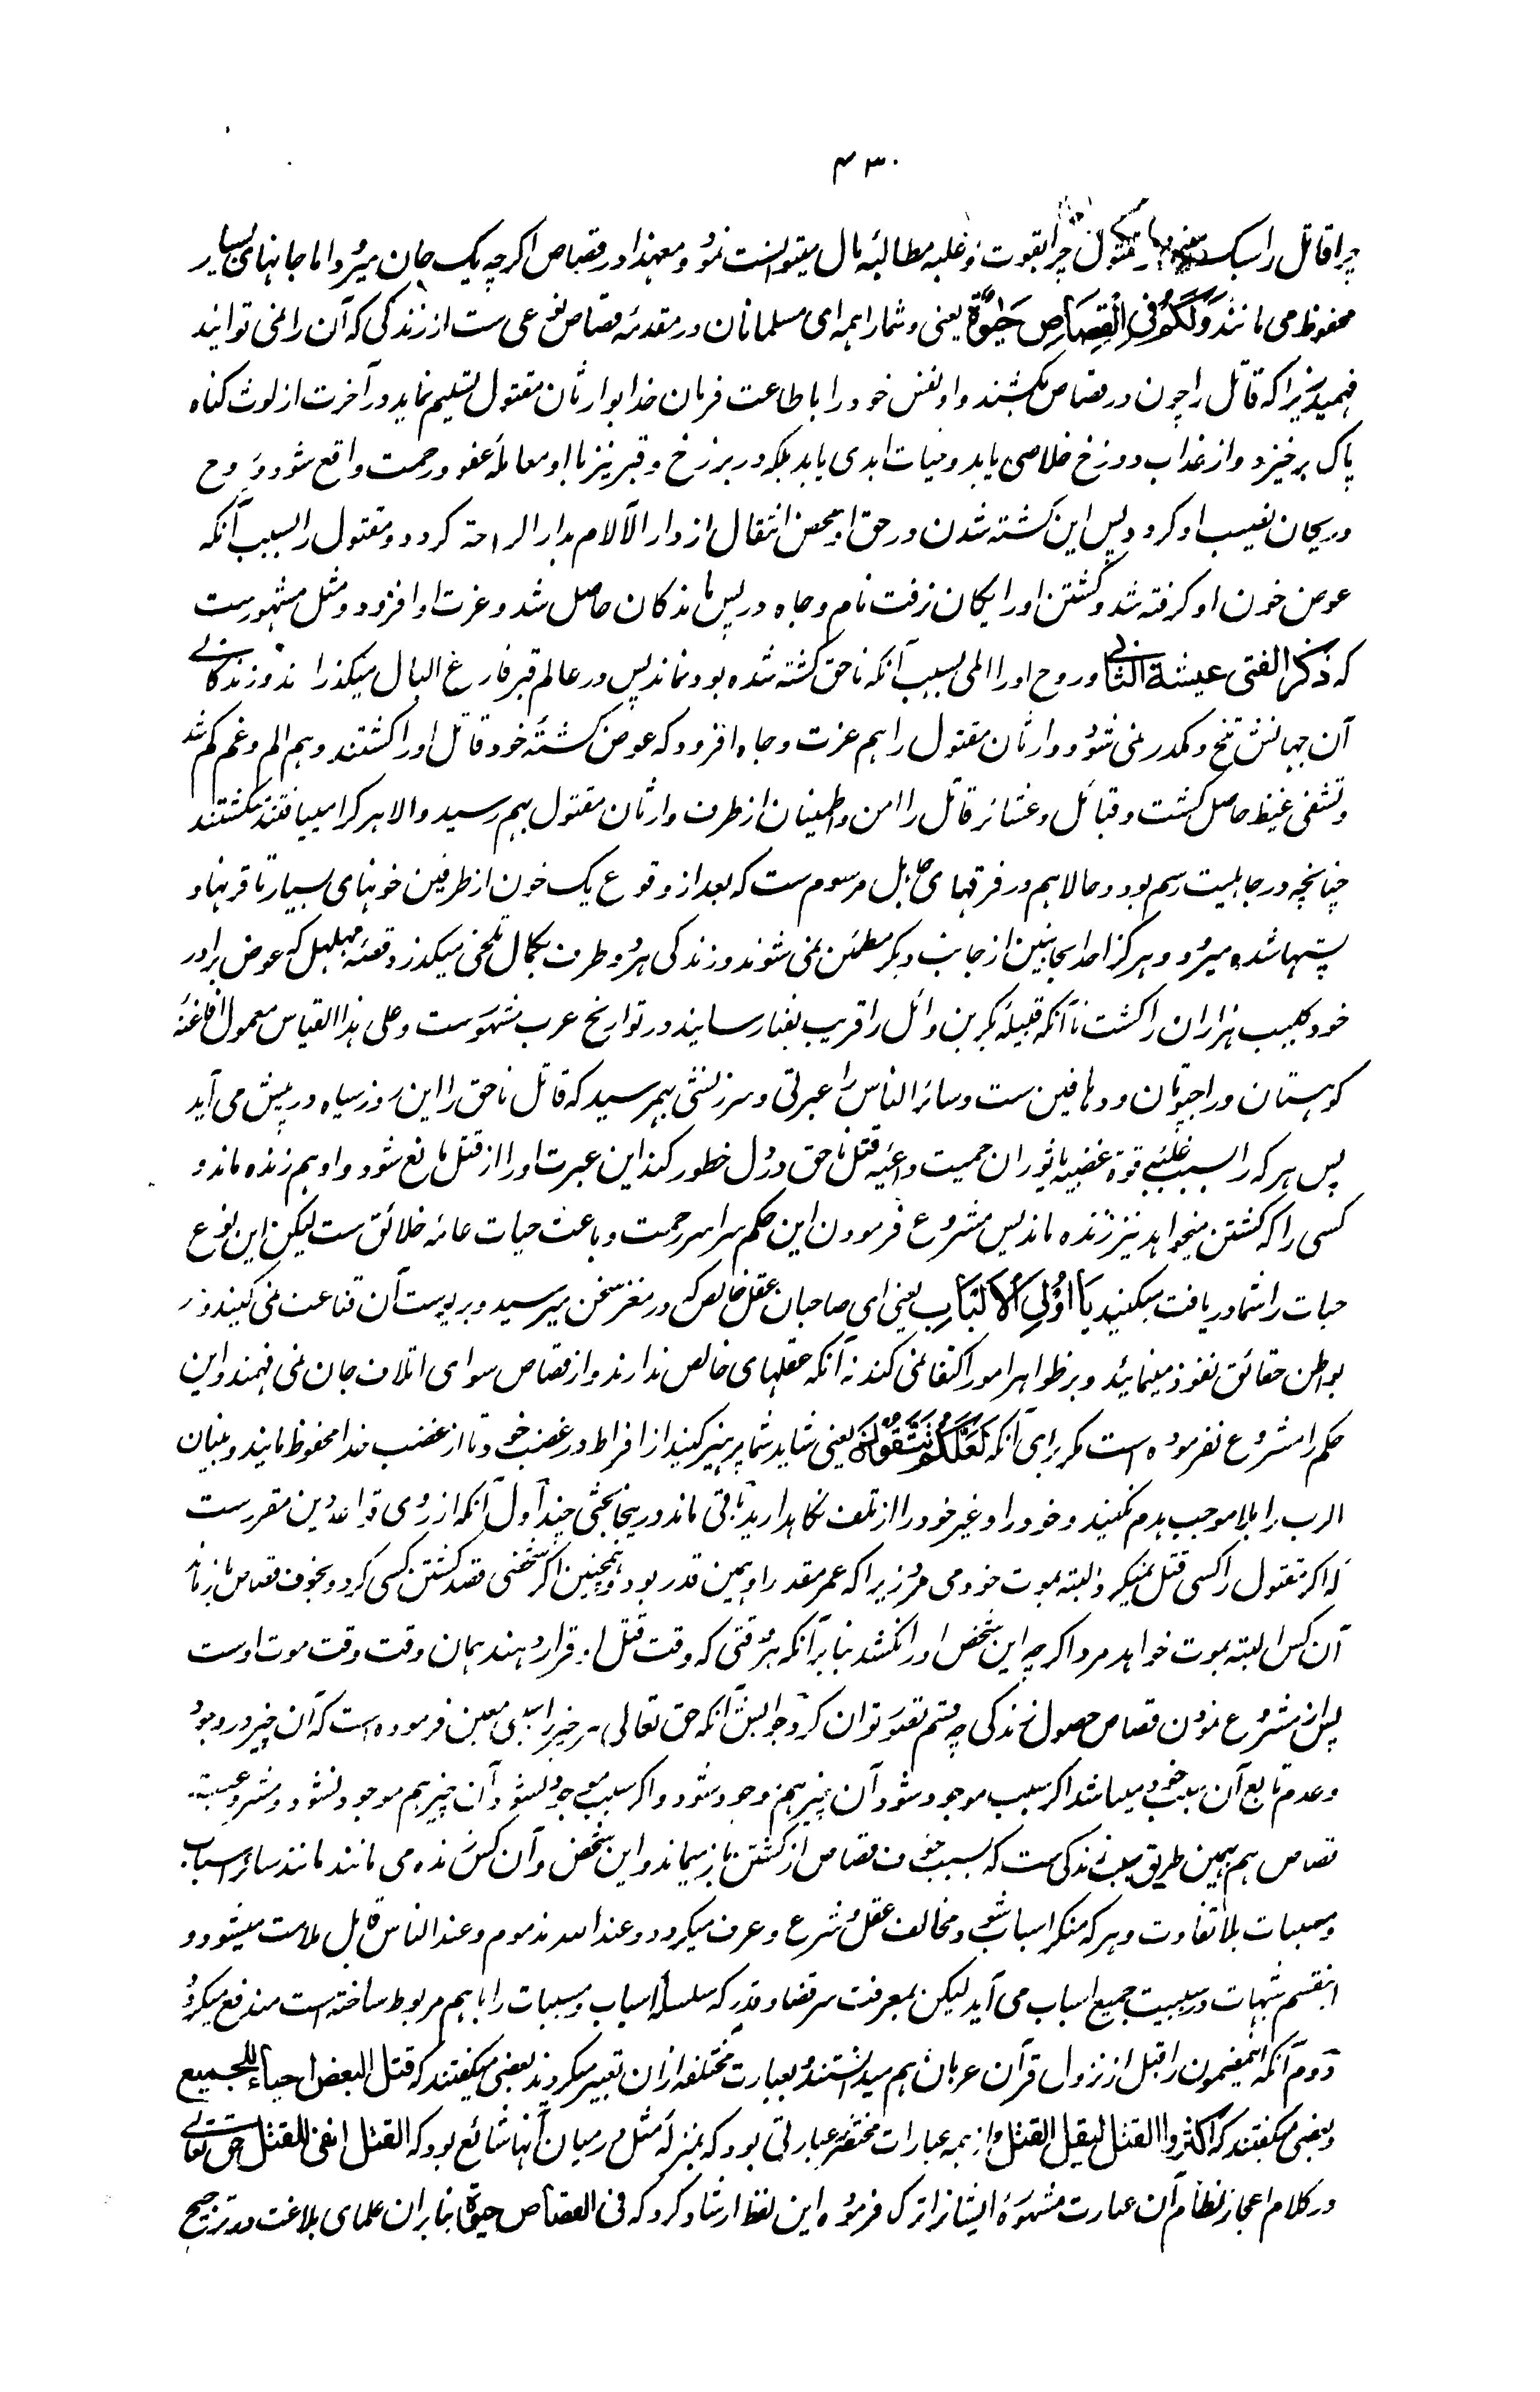 ۴۳۰
چرا قاتل را سبک مقتول چرا بقوت و غلبه مطالبهٔ مال میتوانست نمود و معهذا در قصاص اگرچه یک جان میرود اما جانهای بسیار
محفوظ می مانند وَلَكُمْ فِي الْقِصَاصِ حَيٰوةٌ یعنی و شما را همه ای مسلمانان در مقدمهٔ قصاص نوعی ست از زندگی که آن را نمی توانید
فهمید زیرا که قاتل را چون در قصاص بکشند و او نفس خود را با طاعت فرمان خدا بوارثان مقتول تسلیم نماید در آخرت از لوث گناه
پاک برخیزد و از عذاب دوزخ خلاصی یابد و حیات ابدی یابد بلکه در برزخ و قبر نیز با او معاملهٔ عفو و رحمت واقع شود و روح
و ریحان نصیب او گردد پس این کشته شدن در حق او محض انتقال از دار الآلام بدار الراحة گردد و مقتول را بسبب آنکه
عوض خون او گرفته شد و کشتن او رایگان نرفت نام و جاه در پس ماندگان حاصل شد و عزت او افزود و مثل مشهورست
که ذکر الفتی عیشة الثانی و روح او را المی بسبب آنکه ناحق کشته شده بود نماند پس در عالم قبر فارغ البال میگذراند و زندگانی
آن جهانش تلخ و مکدر نمی شود و وارثان مقتول را هم عزت و جاه افزود که عوض کشتهٔ خود قاتل او را کشتند و هم الم و غم کم شد
و تشفی غیظ حاصل گشت و قبائل و عشائر قاتل را امن و اطمینان از طرف وارثان مقتول بهم رسید و الا هر کرا می یافتند میکشتند
چنانچه در جاهلیت رسم بود و حالا هم در فرقهای جاهل مرسوم ست که بعد از وقوع یک خون از طرفین خونهای بسیار تا قرنها و
پشتها شده میرود و هرگز احد الجانبین از جانب دیگر مطمئن نمی شوند و زندگی هر دو طرف بکمال تلخی میگذرد و قصهٔ مهلهل که عوض برادر
خود کلیب هزاران را کشت تا آنکه قبیلهٔ بکر بن وائل را قریب بفنا رسانید در تواریخ عرب مشهورست و علی هذا القیاس معمول افاغنهٔ
کوهستان و راجپوتان و دهاقین ست و سائر الناس را عبرتی و سرزنشی بهم رسید که قاتل ناحق را این روز سیاه در پیش می آید
پس هر که را بسبب غلبهٔ قوة غضبیه یا ثوران حمیت داعیهٔ قتل ناحق در دل خطور کند این عبرت او را از قتل مانع شود و او هم زنده ماند و
کسی را که کشتن میخواهد نیز زنده ماند پس مشروع فرمودن این حکم سراسر رحمت و باعث حیات عامهٔ خلائق ست لیکن این نوع
حیات را شما دریافت میکنید يَا أُولِي الْأَلْبَابِ یعنی ای صاحبان عقل خالص که در مغز سخن میرسید و بر پوست آن قناعت نمی کنید و در
بواطن حقائق نفوذ مینمائید و بر ظواهر امور اکتفا نمی کنند نه آنکه عقلهای خالص ندارند و از قصاص سوای اتلاف جان نمی فهمند و این
حکم را مشروع نفرموده است مگر برای آنکه لَعَلَّكُمْ تَتَّقُونَ یعنی شاید شما پرهیز کنید از افراط در غضب خود تا از غضب خدا محفوظ مانید و بنیان
الرب را بلا موجب هدم نکنید و خود را و غیر خود را از تلف نگاهدارید باقی ماند درینجا بحثی چند اول آنکه از روی قواعد دین مقررست
که اگر مقتول را کسی قتل نمیکرد البته بموت خود می مرد زیرا که عمر مقدر او همین قدر بود و همچنین اگر شخصی قصد کشتن کسی کرد و بخوف قصاص باز ماند
آن کس البته بموت خواهد مرد اگرچه این شخص او را نکشد بنا بر آنکه هر وقتی که وقت قتل او قرار دهند همان وقت وقت موت اوست
پس از مشروع نمودن قصاص حصول زندگی چه قسم تصور توان کرد جوابش آنکه حق تعالی هر چیز را سببی معین فرموده است که آن چیز در وجود
و عدم تابع آن سبب خود میباشد اگر سبب موجود شود آن چیز هم موجود شود و اگر سبب موجود نشود آن چیز هم موجود نشود و مشروعیت
قصاص هم بهمین طریق سبب زندگی ست که بسبب خوف قصاص از کشتن باز میماند و این شخص و آن کس زنده می مانند مانند سائر اسباب
و مسببات بلا تفاوت و هر که منکر اسباب شود مخالف عقل و شرع و عرف میگردد و عند الله مذموم و عند الناس قابل ملامت میشود و
اینقسم شبهات در سببیت جمیع اسباب می آید لیکن بمعرفت سر قضا و قدر که سلسلهٔ اسباب و مسببات را با هم مربوط ساخته است مندفع میگردد
دوم آنکه این مضمون را قبل از نزول قرآن عربان هم میدانستند و بعبارات مختلفه ازان تعبیر میکردند بعضی میگفتند که قتل البعض احیاء للجمیع
و بعضی میگفتند که اکثروا القتل لیقل القتل و از همه عبارات مختصر عبارتی بود که بمنزلهٔ مثل در میان آنها شائع بود که القتل انفی للقتل حق تعالی
در کلام اعجاز نظام آن عبارت مشهورهٔ ایشانرا ترک فرموده این لفظ ارشاد کرد که فی القصاص حیوة بنا بران علمای بلاغت در ترجیح